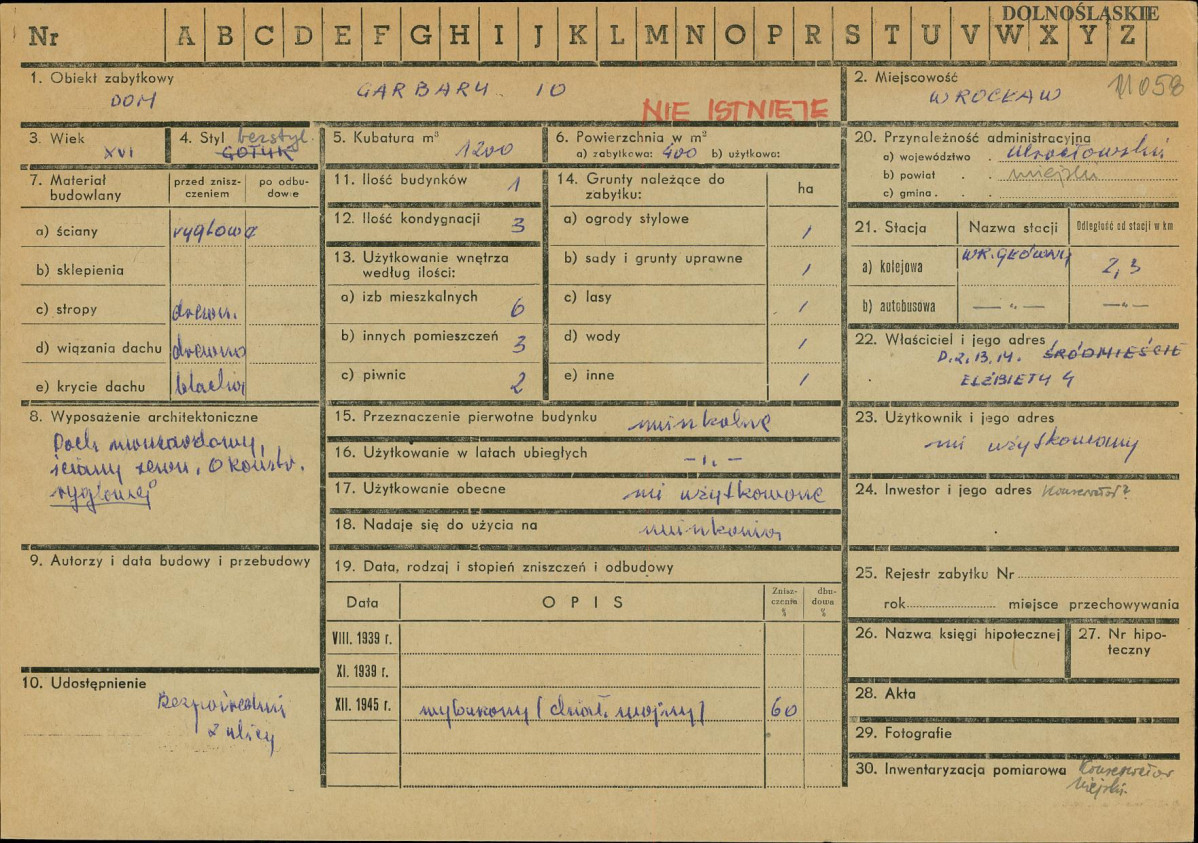 DOLNOŚLĄSKIE
Nr A B C D E F G H I J K L M N O P R S T U V W X Y Z
1. Obiekt zabytkowy
DOM GARBARY 10
NIE ISTNIEJE
2. Miejscowość
WROCŁAW
11058
3. Wiek
XVI
4. Styl bezstyl.
GOTYK
5. Kubatura m³
1200
6. Powierzchnia w m²
a) zabytkowa: 400 b) użytkowa:
7. Materiał budowlany
przed znisz-
czeniem
po odbu-
dowie
a) ściany ryglowa
b) sklepienia
c) stropy drewn.
d) wiązania dachu drewno
e) krycie dachu blacha
8. Wyposażenie architektoniczne
Dach mansardowy,
ściany zewn. o konstr.
ryglowej
9. Autorzy i data budowy i przebudowy
10. Udostępnienie
Bezpośrednio
z ulicy
11. Ilość budynków 1
12. Ilość kondygnacji 3
13. Użytkowanie wnętrza
według ilości:
a) izb mieszkalnych 6
b) innych pomieszczeń 3
c) piwnic 2
14. Grunty należące do
zabytku:
ha
a) ogrody stylowe /
b) sady i grunty uprawne /
c) lasy /
d) wody /
e) inne /
15. Przeznaczenie pierwotne budynku mieszkalne
16. Użytkowanie w latach ubiegłych -„-
17. Użytkowanie obecne nie użytkowane
18. Nadaje się do użycia na mieszkania
19. Data, rodzaj i stopień zniszczeń i odbudowy
Data OPIS Znisz-
czenia
%
dbu-
dowa
%
VIII. 1939 r.
XI. 1939 r.
XII. 1945 r. wybuchowy (dział. wojny) 60
20. Przynależność administracyjna
a) województwo . Wrocławskie
b) powiat . . miejski
c) gmina . .
21. Stacja Nazwa stacji Odległość od stacji w km
a) kolejowa WR. GŁÓWNY 2,3
b) autobusowa — „ — — „ —
22. Właściciel i jego adres
D.Z.B.M. ŚRÓDMIEŚCIE
ELŻBIETY 4
23. Użytkownik i jego adres
nie użytkowany
24. Inwestor i jego adres Konserwator?
25. Rejestr zabytku Nr
rok miejsce przechowywania
26. Nazwa księgi hipotecznej
27. Nr hipo-
teczny
28. Akta
29. Fotografie
30. Inwentaryzacja pomiarowa Konserwator
Miejski.